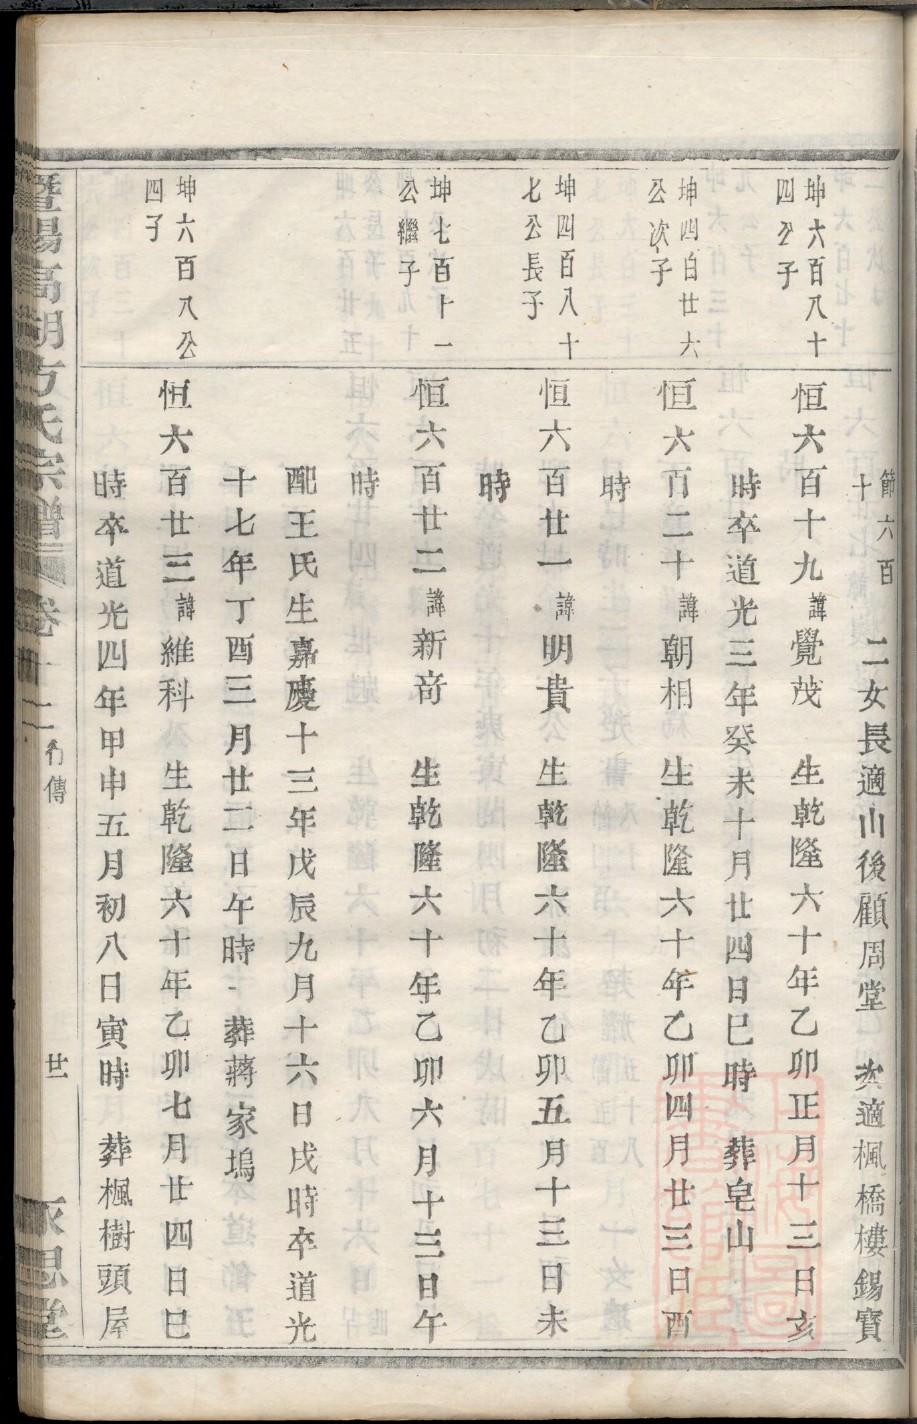 節六百
十
二女長適山後顧周堂　次適楓橋樓錫寶
坤六百八十
四公子
恒六百十九諱覺茂　生乾隆六十年乙卯正月十三日亥
時卒道光三年癸未十月廿四日巳時　葬皂山
坤四百廿六
公次子
恒六百二十諱朝相　生乾隆六十年乙卯四月廿三日酉
時
坤四百八十
七公長子
恒六百廿一諱明貴　生乾隆六十年乙卯五月十三日未
時
坤七百十一
公繼子
恒六百廿二諱新奇　生乾隆六十年乙卯六月十三日午
時
配王氏生嘉慶十三年戊辰九月十六日戌時卒道光
十七年丁酉三月廿二日午時　葬蔣家塢
坤六百八公
四子
恒六百廿三諱維科　生乾隆六十年乙卯七月廿四日巳
時卒道光四年甲申五月初八日寅時　葬楓樹頭屋
暨陽高湖方氏宗譜　卷十二　行傳　廿一　永思堂